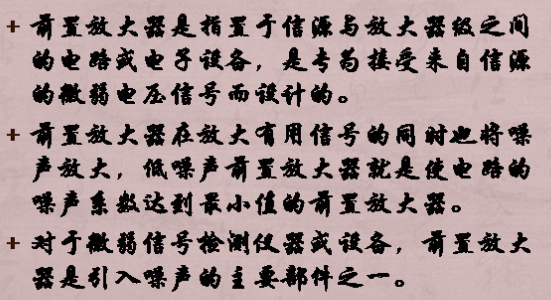 + 前置放大器是指置于信源与放大器级之间
的电路或电子设备，是专为接受来自信源
的微弱电压信号而设计的。
+ 前置放大器在放大有用信号的同时也将噪
声放大，低噪声前置放大器就是使电路的
噪声系数达到最小值的前置放大器。
+ 对于微弱信号检测仪器或设备，前置放大
器是引入噪声的主要部件之一。